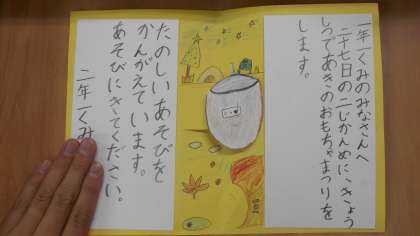 一年一くみのみなさんへ
二十七日の二じかんめに、きょう
しつであきのおもちゃまつりを
します。
たのしいあそびを
かんがえています。
あそびにきてください。
二年一くみ